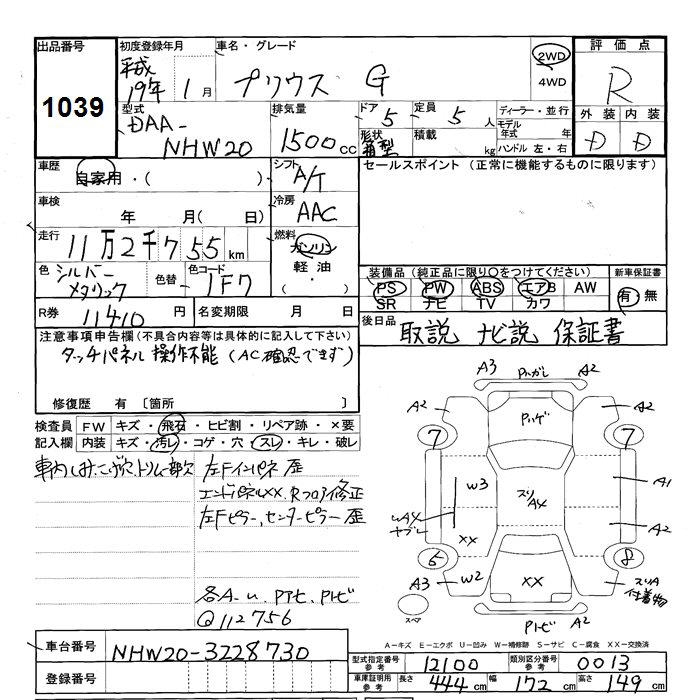 出品番号
1039
初度登録年月
平成
19年 1月
車名・グレード
プリウス G
2WD
4WD
評価点
R
外装 内装
D D
型式
DAA-
NHW20
排気量
1500cc
ドア
5
形状
箱型
定員
5人
積載
kg
ディーラー・並行
モデル
年式 年
ハンドル 左・右
車歴
自家用・( )
シフト
A/T
セールスポイント (正常に機能するものに限ります)
車検
年 月( 日)
冷房
AAC
走行
11万2千755km
燃料
ガソリン
軽油
( ・ )
色
シルバー
メタリック
色替
色コード
1F7
装備品 (純正品に限り○をつけてください)
PS PW ABS エアB AW
SR ナビ TV カワ
新車保証書
有・無
R券
11410円
名変期限 月 日
後日品
取説 ナビ説 保証書
注意事項申告欄 (不具合内容等は具体的に記入して下さい)
タッチパネル 操作不能 (AC確認できず)
修復歴 有 〔箇所 〕
検査員
記入欄
FW キズ・飛石・ヒビ割・リペア跡・×要
内装 キズ・汚レ・コゲ・穴・スレ・キレ・破レ
車内しみ、こげ穴、トリム一部欠
左Fインパネ 歪
エンドパネルXX、Rフロア修正
左Fピラー、センターピラー 歪
各A-U、Pアセ、Pトビ
Q112756
A3 Pハガレ A2
A2 Pハゲ A2
7 7
W3 スリ A4 A1
UA4
ヤブレ
XX A2
6 8
A3 W2 XX スリA
付着物
スペア
Pトビ A2
A-キズ E-エクボ U-凹み W-補修跡 S-サビ C-腐食 XX-交換済
車台番号
NHW20-3228730
登録番号
型式指定番号
参考
12100
類別区分番号
参考
0013
車庫証明用
参考
長さ 444cm 幅 172cm 高さ 149cm